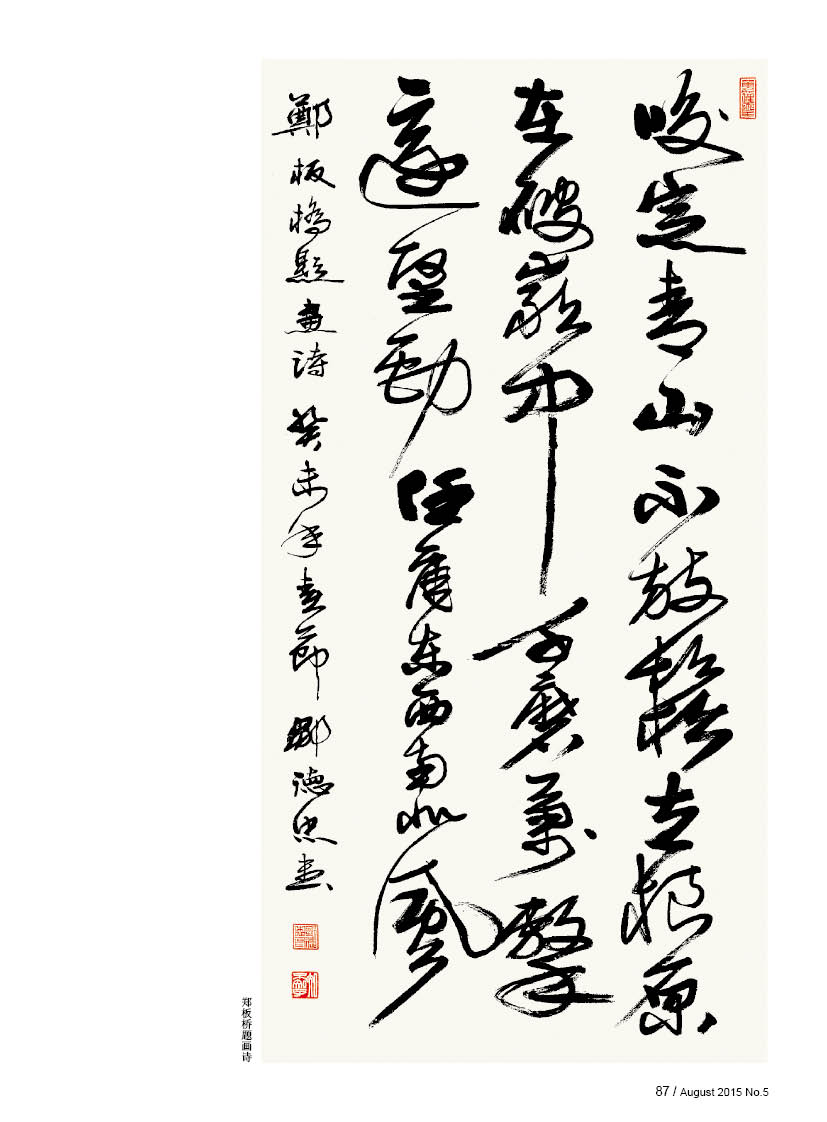 咬定青山不放鬆立根原
在破巖中千磨萬擊
還堅勁任爾東西南北風
鄭板橋題畫詩 癸未年春節 鄒德忠書
郑板桥题画诗
87 / August 2015 No.5